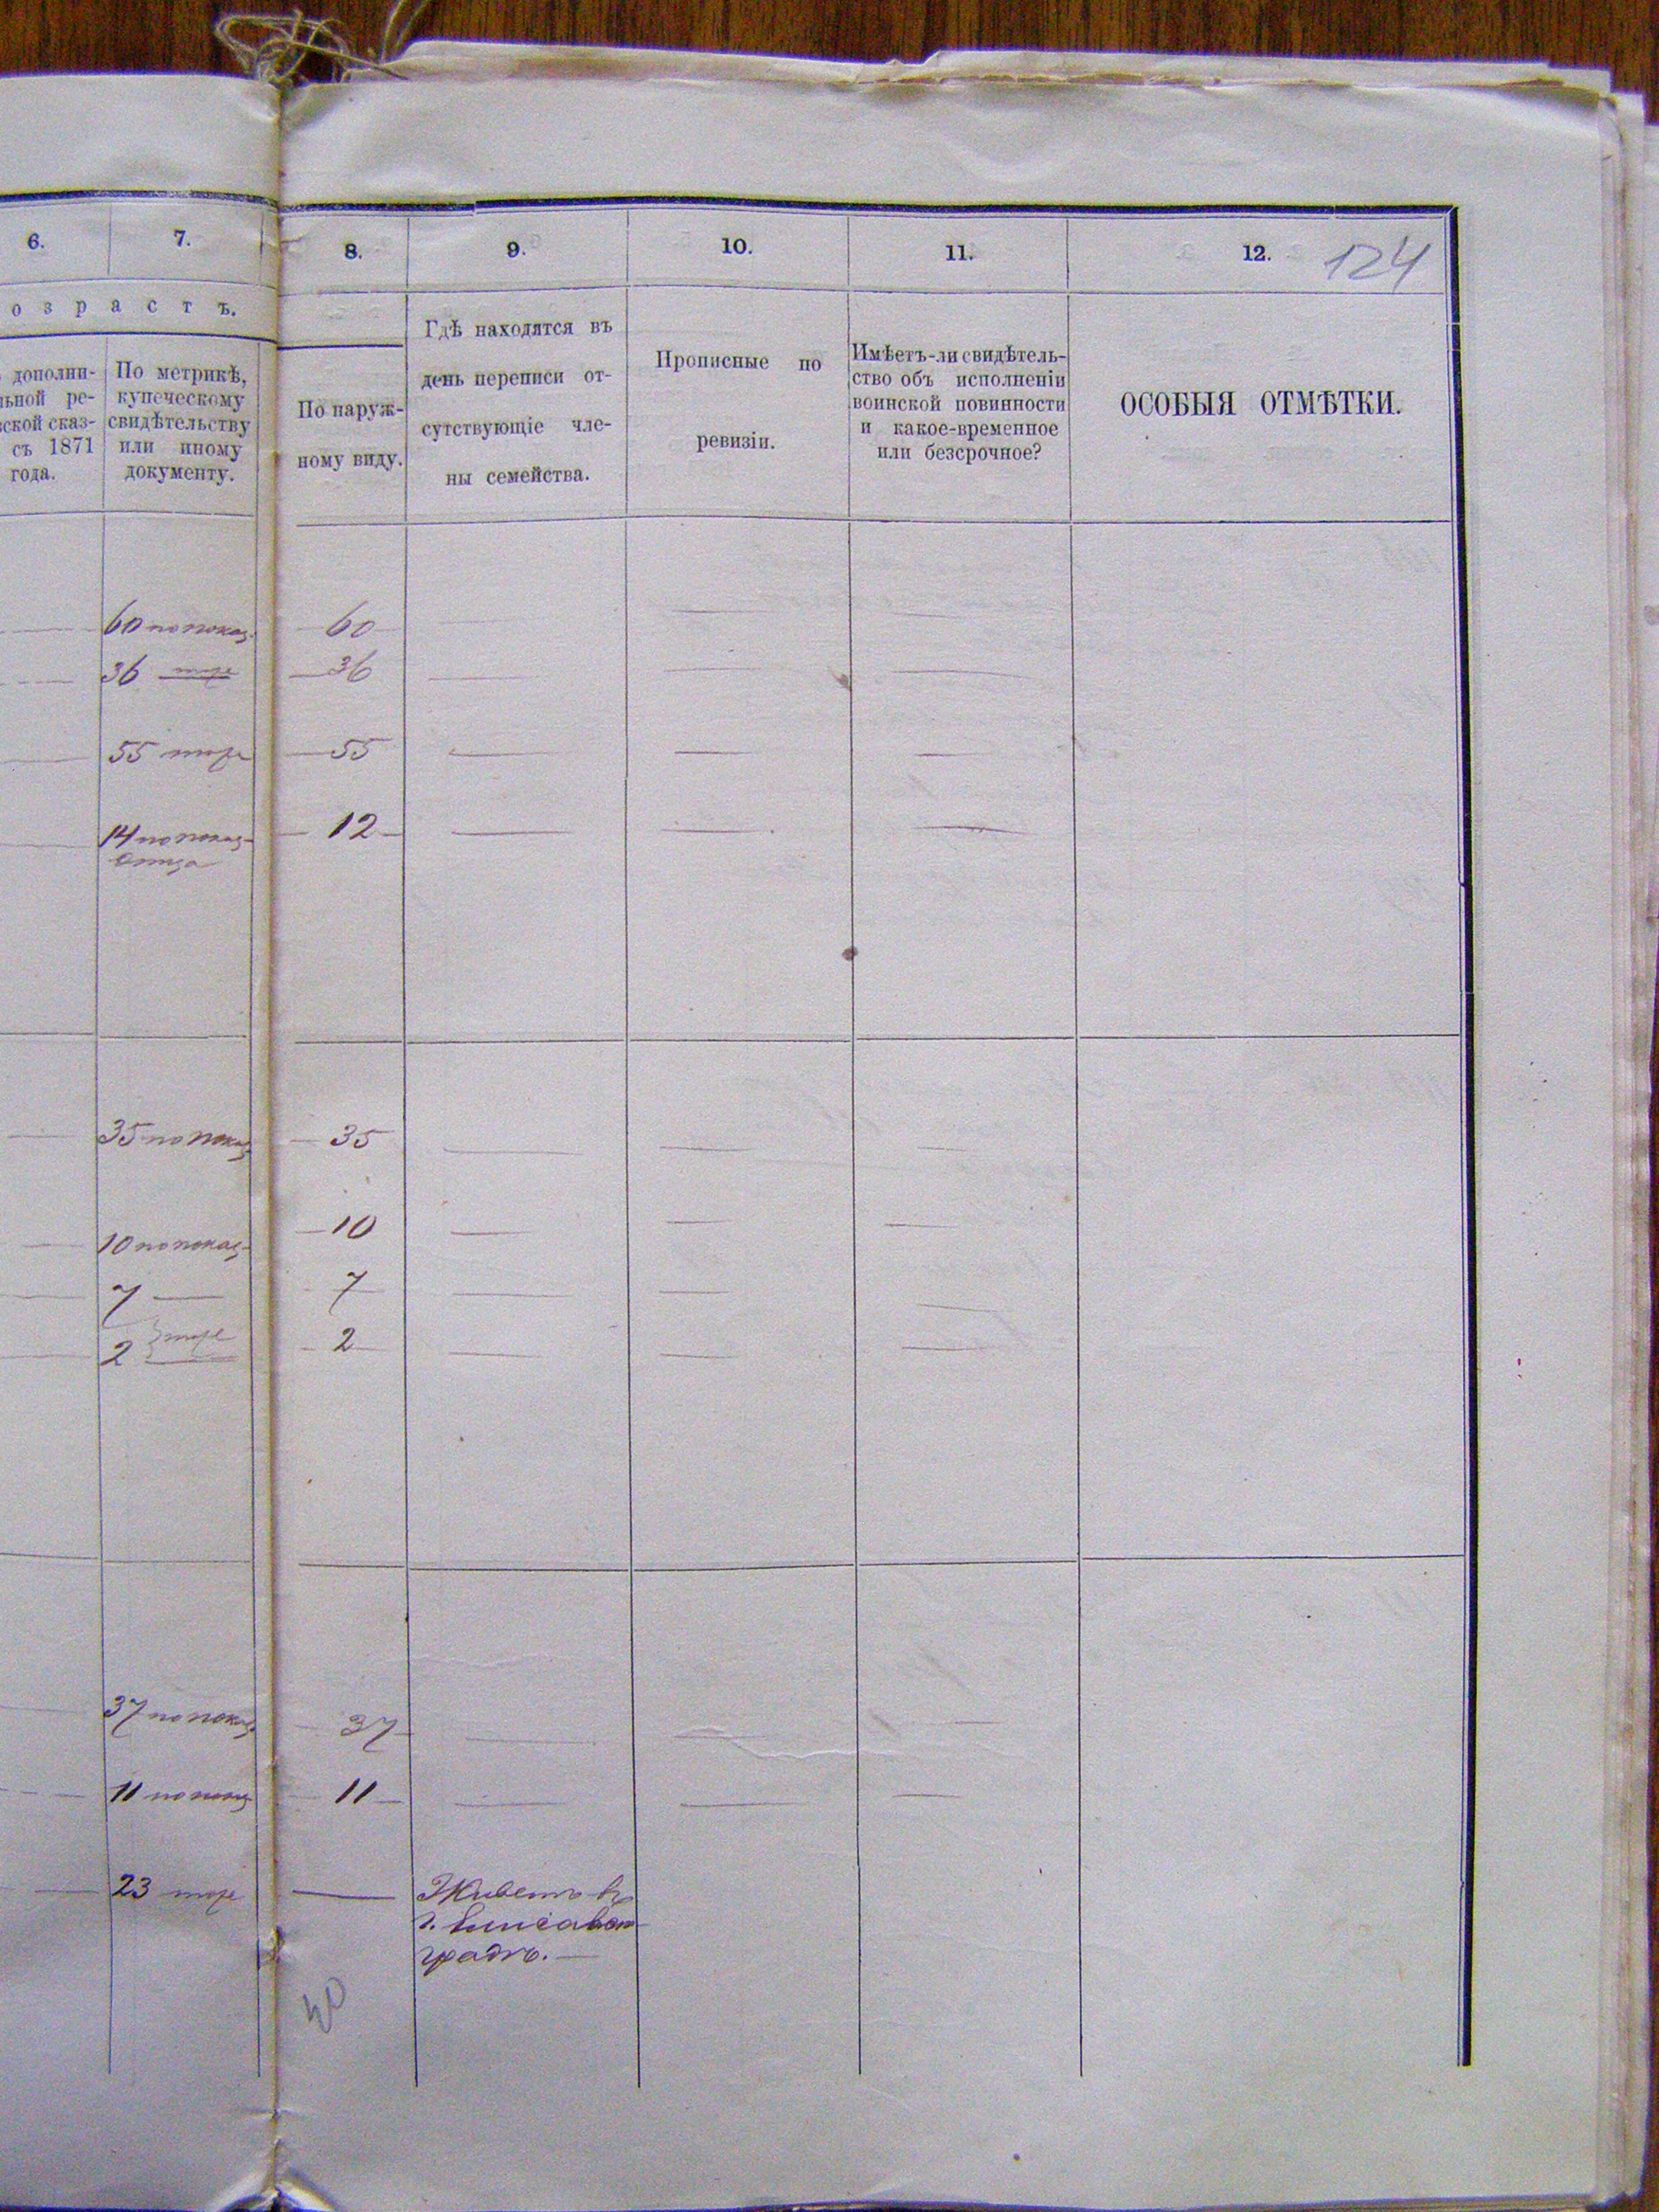 6. 7. 8. 9. 10. 11. 12. 124
о з р а с т ъ.
дополни-
ьной ре-
ской сказ-
съ 1871
года.
По метрикѣ,
купеческому
свидѣтельству
или иному
документу.
По наруж-
ному виду.
Гдѣ находятся въ
день переписи от-
сутствующіе чле-
ны семейства.
Прописные по
ревизіи.
Имѣетъ-ли свидѣтель-
ство объ исполненіи
воинской повинности
и какое-временное
или безсрочное?
ОСОБЫЯ ОТМѢТКИ.
60 по показ. 60
36 тоже 36
55 тоже 55
14 по показ. 12
отца
35 по показ. 35
10 по показ. 10
7 7
2 тоже 2
37 по показ. 37
11 по показ. 11
23 тоже Живетъ въ
г. Елисавет
градѣ.